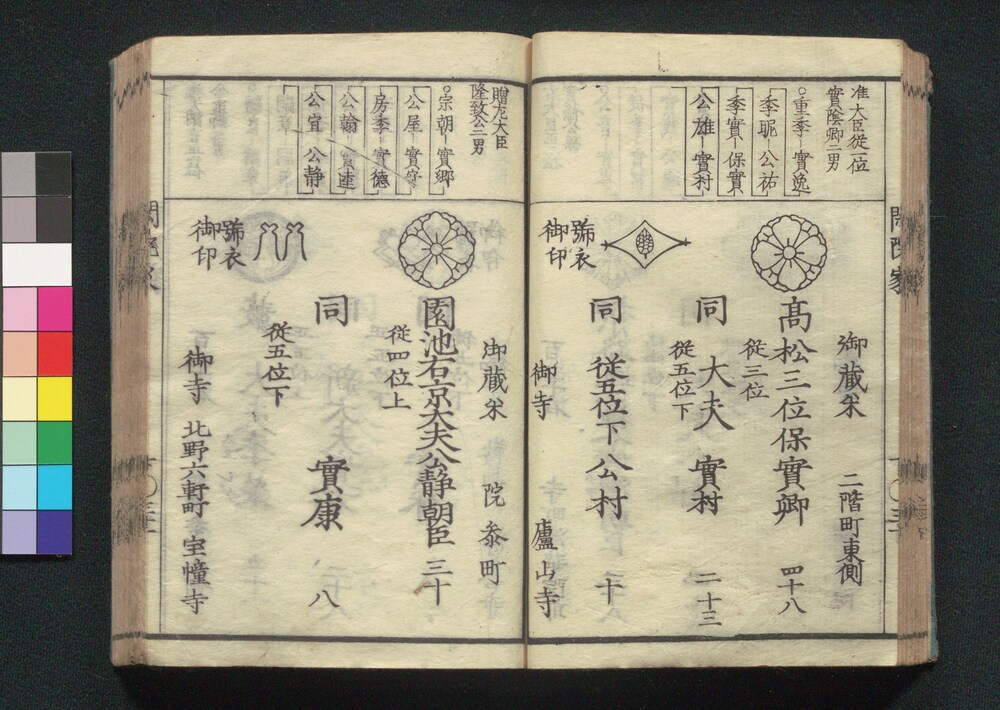 准大臣従一位
實陰卿二男
○重季─實逸
季昵─公祐
季實─保實
公雄─實村
御蔵米　二階町東側
髙松三位保實卿　四十八
従三位
同　大夫　實村　二十三
従五位下
號衣
御印
同　従五位下公村　十
御寺　廬山寺
贈左大臣
隆致公二男
○宗朝─實郷
公屋─實守
房季─實德
公翰─實連
公宜　公静
御蔵米　院参町
園池右京大夫公静朝臣　三十
従四位上
號衣
御印
同　實康　八
従五位下
御寺　北野六軒町　宝幢寺